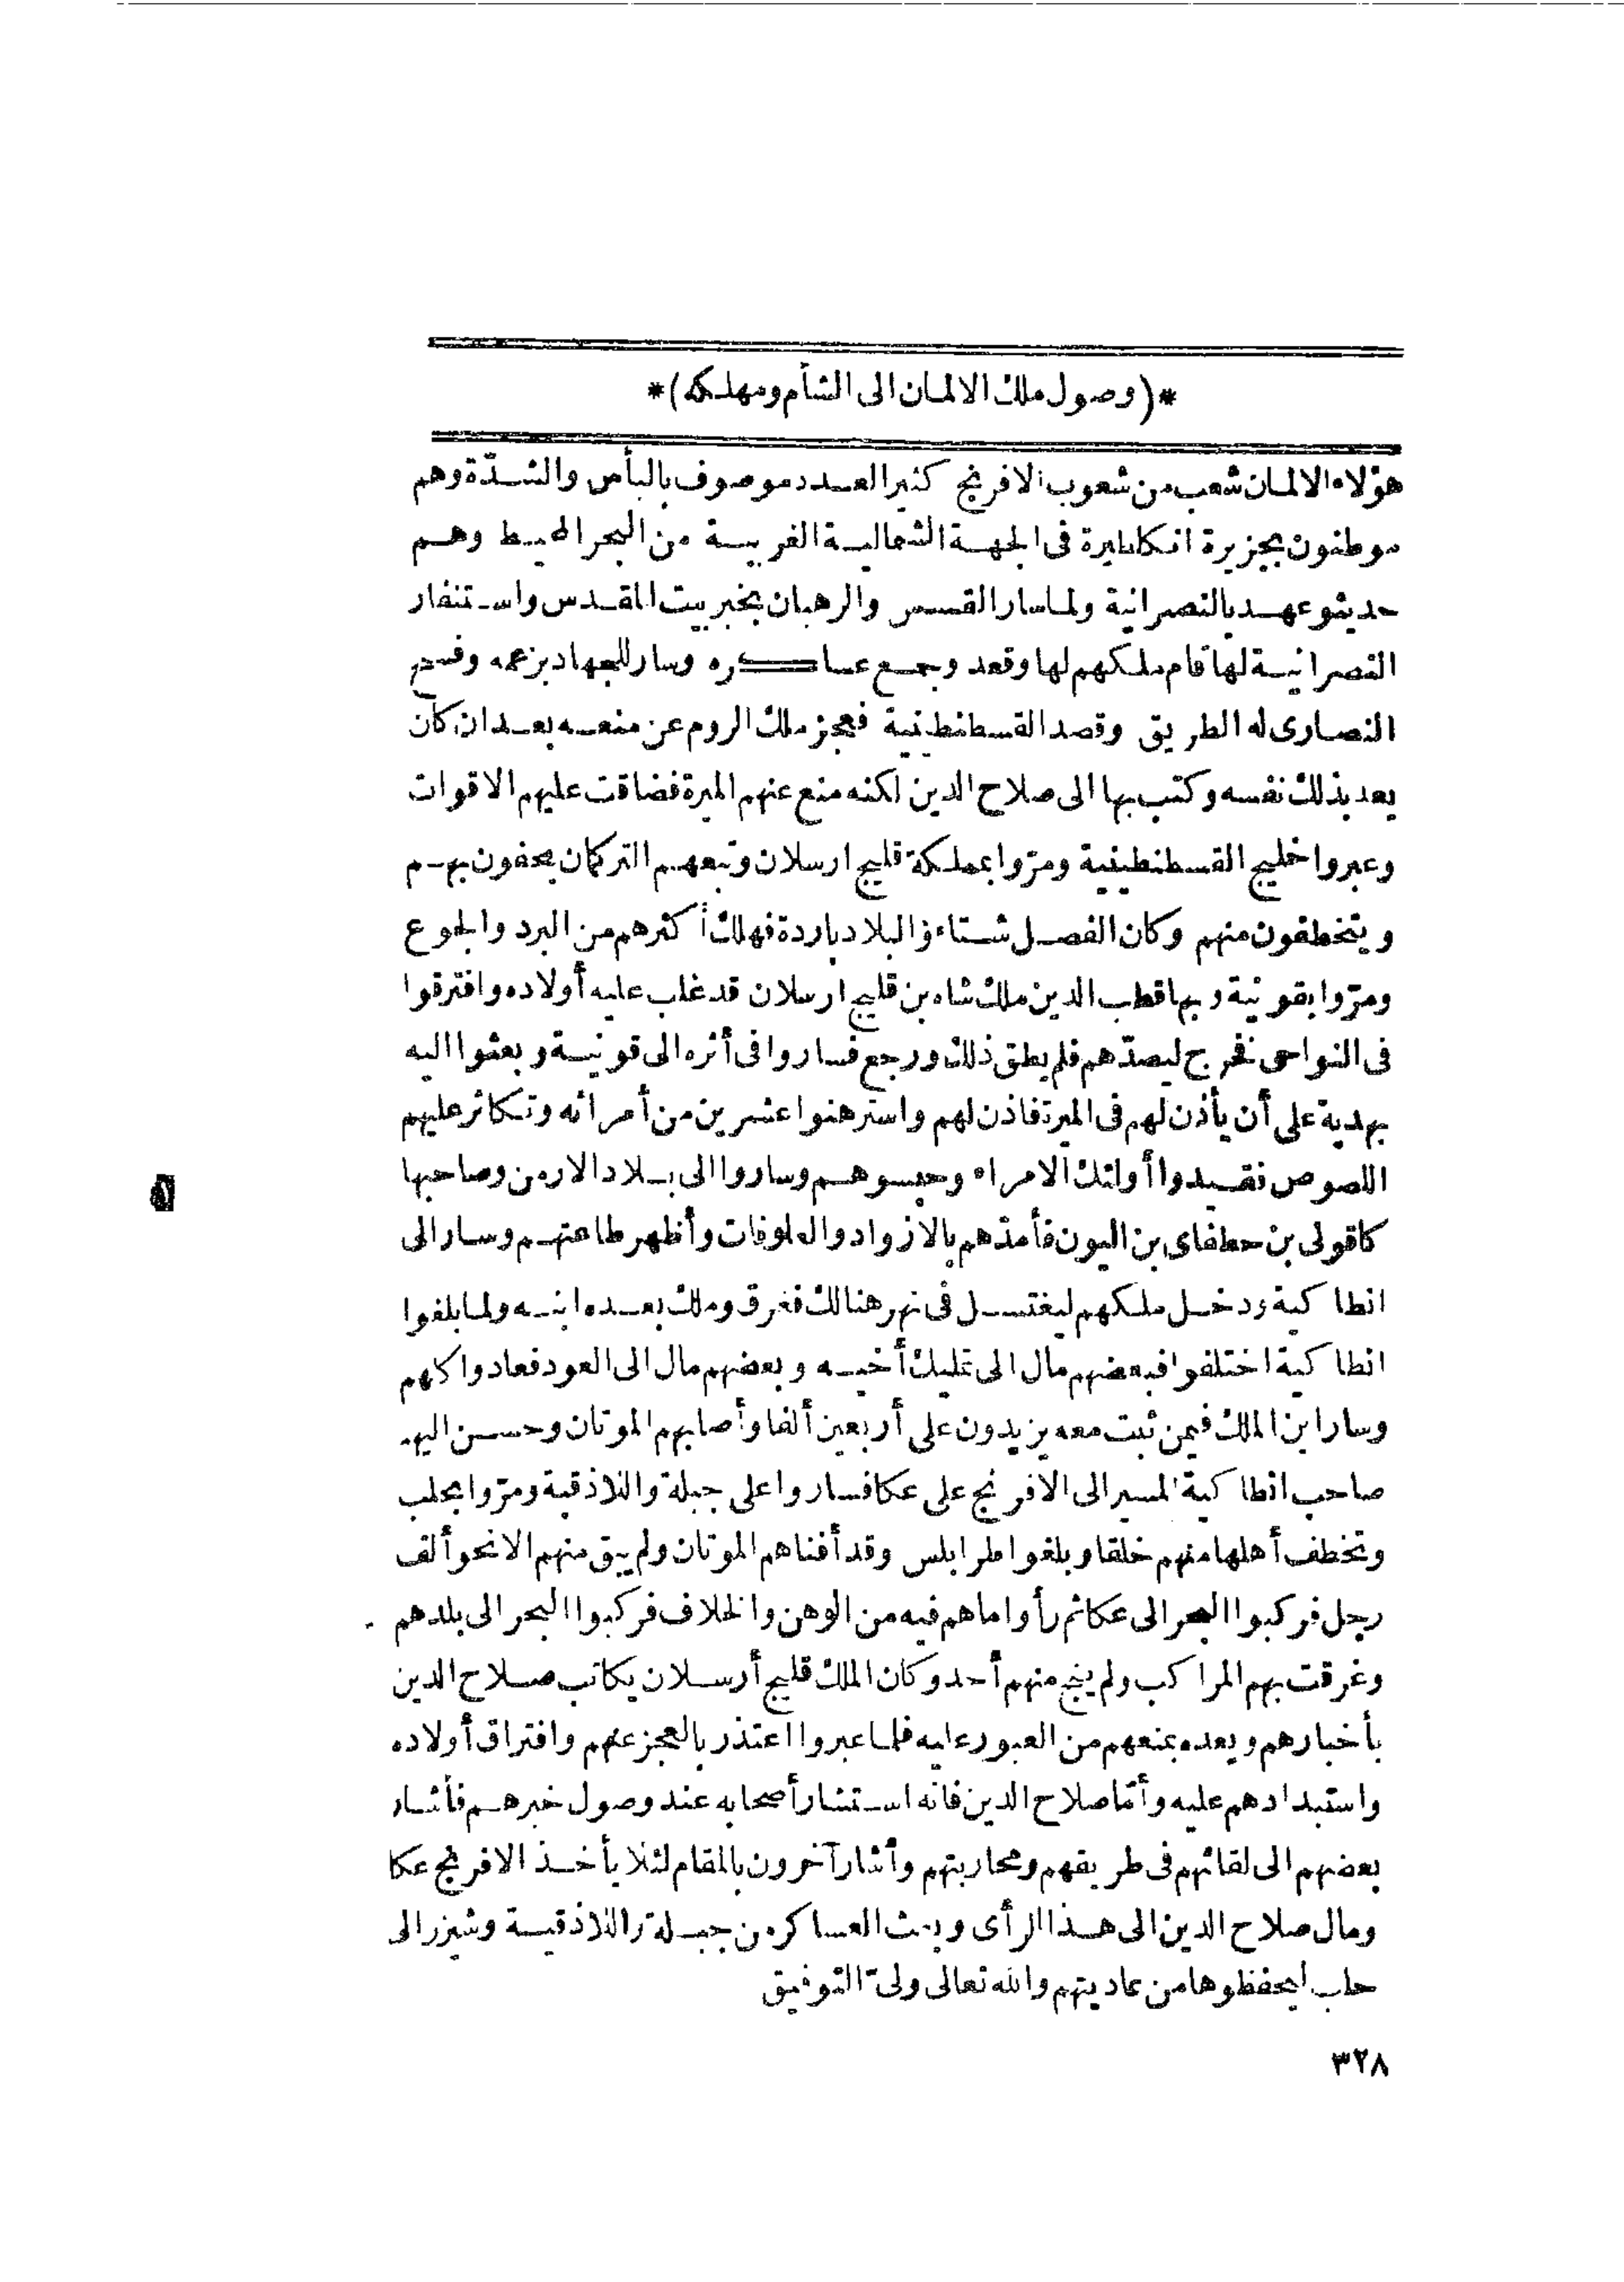 *(وصول ملك الالمان الى الشأم ومهلكه)*
هؤلاء الالمان شعب من شعوب الافرنج كثير العدد موصوف بالبأس والشدّة وهم
موطنون بجزيرة انكلطيرة فى الجهة الشمالية الغربية من البحر المحيط وهم
حديثو عهد بالنصرانية ولما سار القسس والرهبان بخبر بيت المقدس واستنفار
النصرانية لها قام ملكهم لها وقعد وجمع عساكره وسار للجهاد بزعمه وفسح
النصارى له الطريق وقصد القسطنطينية فعجز ملك الروم عن منعه بعد ان كان
يعد بذلك نفسه وكتب بها الى صلاح الدين لكنه منع عنهم الميرة فضاقت عليهم الاقوات
وعبروا خليج القسطنطينية ومرّوا بمملكة قليج ارسلان وتبعهم التركمان يحفون بهم
ويتخطفون منهم وكان الفصل شتاء والبلاد باردة فهلك أكثرهم من البرد والجوع
ومرّوا بقونية وبها قطب الدين ملك شاه بن قليج ارسلان قد غلب عليه أولاده وافترقوا
فى النواحى فخرج ليصدّهم فلم يطق ذلك ورجع فساروا فى أثره الى قونية وبعثوا اليه
بهدية على أن يأذن لهم فى الميرة فاذن لهم واسترهنوا عشرين من أمرائه وتكاثر عليهم
اللصوص فقيدوا أولئك الامراء وحبسوهم وساروا الى بلاد الارمن وصاحبها
كاقولى بن حطفاى بن اليون فأمدّهم بالازواد والعلوفات وأظهر طاعتهم وسار الى
انطاكية ودخل ملكهم ليغتسل فى نهر هنالك فغرق وملك بعده ابنه ولما بلغوا
انطاكية اختلفوا فبعضهم مال الى تمليك أخيه وبعضهم مال الى العود فعادوا كلهم
وسار ابن الملك فيمن ثبت معه يزيدون على أربعين ألفا وأصابهم الموتان وحسن اليهم
صاحب انطاكية المسير الى الافرنج على عكا فساروا على جبلة واللاذقية ومرّوا بحلب
وتخطف أهلها منهم خلقا وبلغوا طرابلس وقد أفناهم الموتان ولم يبق منهم الا نحو ألف
رجل فركبوا البحر الى عكا ثم رأوا ما هم فيه من الوهن والخلاف فركبوا البحر الى بلدهم
وغرقت بهم المراكب ولم ينج منهم أحد وكان الملك قليج أرسلان يكاتب صلاح الدين
بأخبارهم ويعده بمنعهم من العبور عليه فلما عبروا اعتذر بالعجز عنهم وافتراق أولاده
واستبدادهم عليه وأمّا صلاح الدين فانه استشار أصحابه عند وصول خبرهم فأشار
بعضهم الى لقائهم فى طريقهم ومحاربتهم وأشار آخرون بالمقام لئلا يأخذ الافرنج عكا
ومال صلاح الدين الى هذا الرأى وبعث العساكر من جبلة واللاذقية وشيزر الى
حلب ليحفظوها من عاديتهم والله تعالى ولىّ التوفيق
٣٢٨